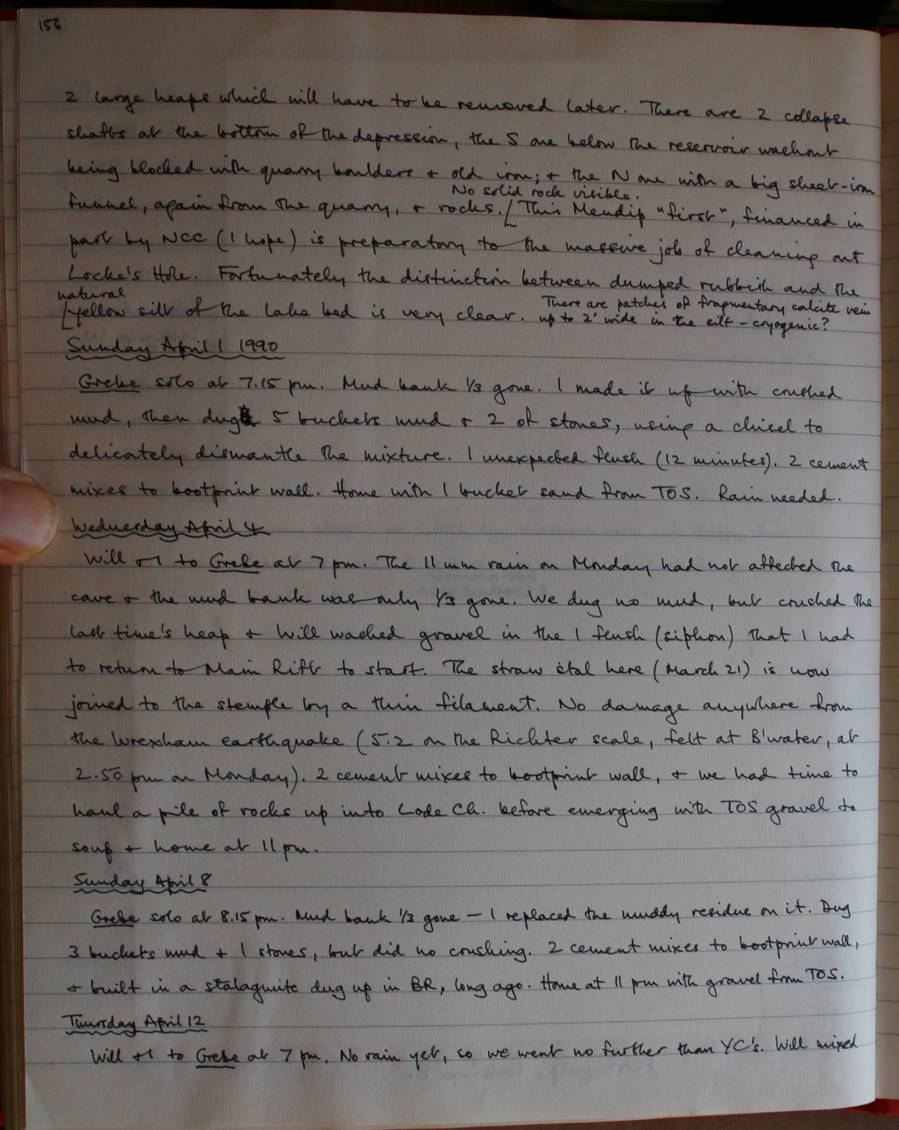 156
2 large heaps which will have to be removed later. There are 2 collapse
shafts at the bottom of the depression, the S one below the reservoir washout
being blocked with quarry boulders + old iron; + the N one with a big sheet-iron
No solid rock visible.
funnel, again from the quarry, + rocks. [This Mendip "first", financed in
part by NCC (I hope) is preparatory to the massive job of cleaning out
Locke's Hole. Fortunately the distinction between dumped rubbish and the
natural
There are patches of fragmentary calcite vein
[yellow silt of the lake bed is very clear. up to 2' wide in the silt - cryogenic?
Sunday April 1 1990
Grebe solo at 7.15 pm. Mud bank 1/3 gone. I made it up with crushed
mud, then dug 5 buckets mud + 2 of stones, using a chisel to
delicately dismantle the mixture. 1 unexpected flush (12 minutes). 2 cement
mixes to bootprint wall. Home with 1 bucket sand from TOS. Rain needed.
Wednesday April 4
Will + I to Grebe at 7 pm. The 11 mm rain on Monday had not affected the
cave + the mud bank was only 1/3 gone. We dug no mud, but crushed the
last time's heap + Will washed gravel in the 1 flush (siphon) that I had
to return to Main Rift to start. The straw stal here (March 21) is now
joined to the stemple by a thin filament. No damage anywhere from
the Wrexham earthquake (5.2 on the Richter scale, felt at B'water, at
2.50 pm on Monday). 2 cement mixes to bootprint wall, + we had time to
haul a pile of rocks up into Lode Ch. before emerging with TOS gravel to
soup + home at 11 pm.
Sunday April 8
Grebe solo at 8.15 pm. Mud bank 1/3 gone - I replaced the muddy residue on it. Dug
3 buckets mud + 1 stones, but did no crushing. 2 cement mixes to bootprint wall,
+ built in a stalagmite dug up in BR, long ago. Home at 11 pm with gravel from TOS.
Thursday April 12
Will + I to Grebe at 7 pm. No rain yet, so we went no further than YC's. Will mixed